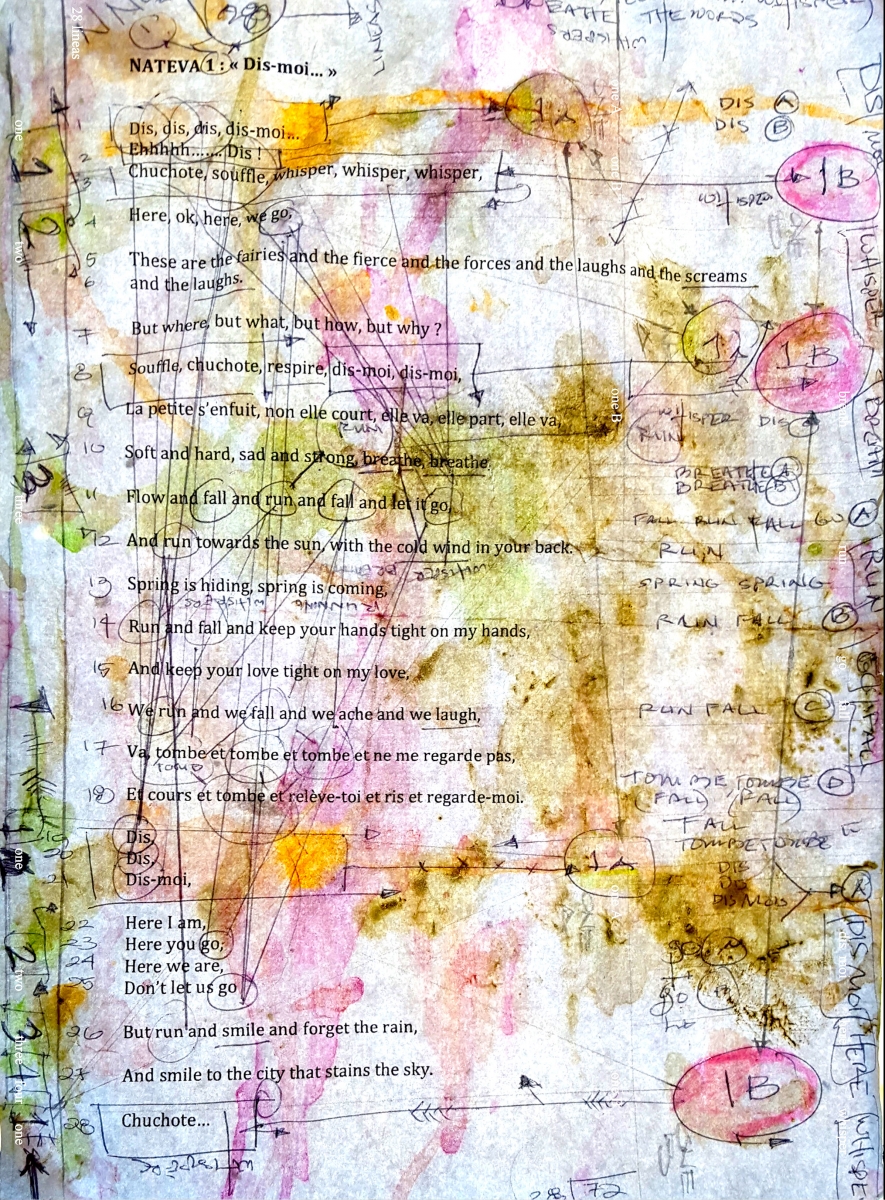 28
28 lineas
BREATHE THE WORDS
WHISPERS
LINES
NATEVA 1 : « Dis-moi… »
1A
DIS A
DIS B
1 Dis, dis, dis, dis-moi…
Ehhhhh……. Dis !
2
3 Chuchote, souffle, whisper, whisper, whisper,
1B
WHISPER
4 Here, ok, here, we go,
5 These are the fairies and the fierce and the forces and the laughs and the screams
6 and the laughs.
7 But where, but what, but how, but why ?
1A
1B
8 Souffle, chuchote, respire, dis-moi, dis-moi,
9 La petite s’enfuit, non elle court, elle va, elle part, elle va,
one B
RUN
WHISPER DIS
RUN
10 Soft and hard, sad and strong, breathe, breathe.
BREATHE A
BREATHE B
11 Flow and fall and run and fall and let it go,
FALL RUN FALL GO A
12 And run towards the sun, with the cold wind in your back.
RUN
WHISPER
13 Spring is hiding, spring is coming,
SPRING SPRING
WHISPERS RUNNING
14 Run and fall and keep your hands tight on my hands,
RUN FALL B
15 And keep your love tight on my love,
16 We run and we fall and we ache and we laugh,
RUN FALL C
17 Va, tombe et tombe et tombe et ne me regarde pas,
TOMB
TOMBE TOMBE D
(FALL) (FALL)
18 Et cours et tombe et relève-toi et ris et regarde-moi.
FALL
TOMBE TOMBE E
19 Dis,
20 Dis,
21 Dis-moi,
1A
DIS
DIS
DIS MOIS
A
22 Here I am,
23 Here you go,
24 Here we are,
25 Don’t let us go
GO A
GO B
26 But run and smile and forget the rain,
27 And smile to the city that stains the sky.
1B
28 Chuchote…
WHISPER
72
one
1
two
2
three
3
one
1
two
2
three
3
four
one
DIS MOI
WHISPER
BREATH
RUN
DIS MOI HERE WHISPE